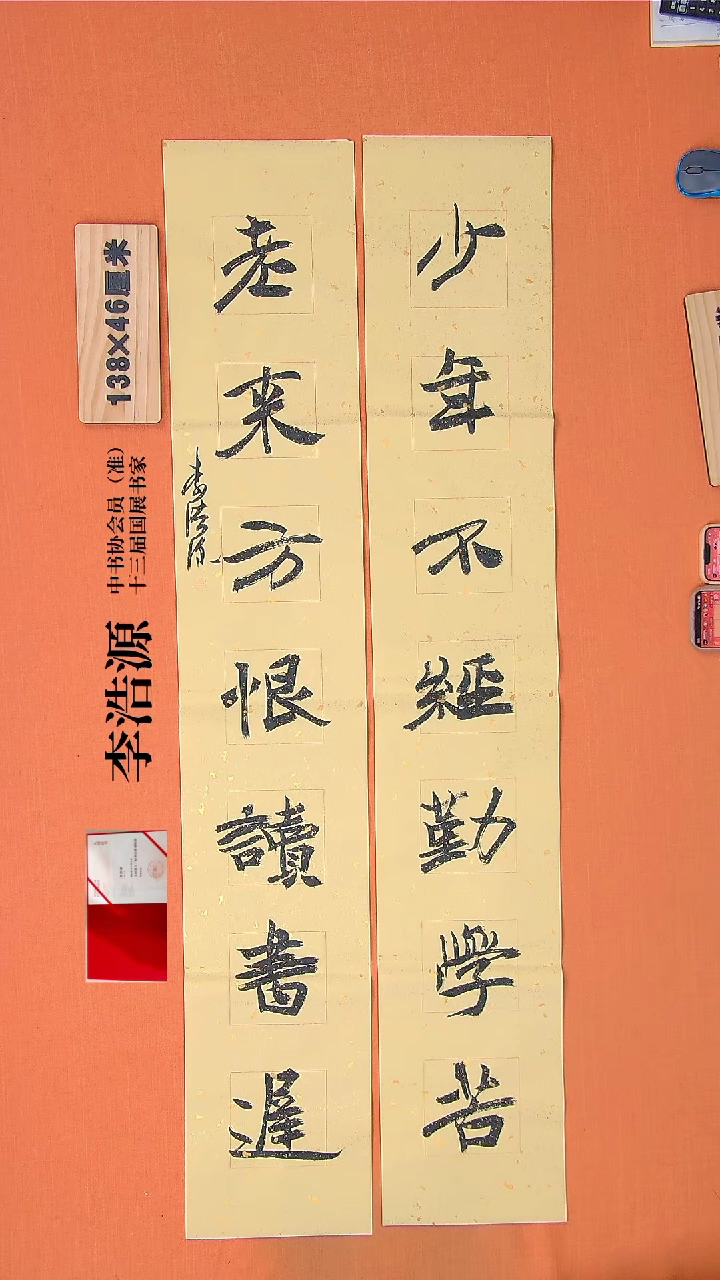 少年不經勤學苦
老来方恨讀書遲
李浩源
138×46厘米
中书协会员（准）
十三届国展书家
李浩源